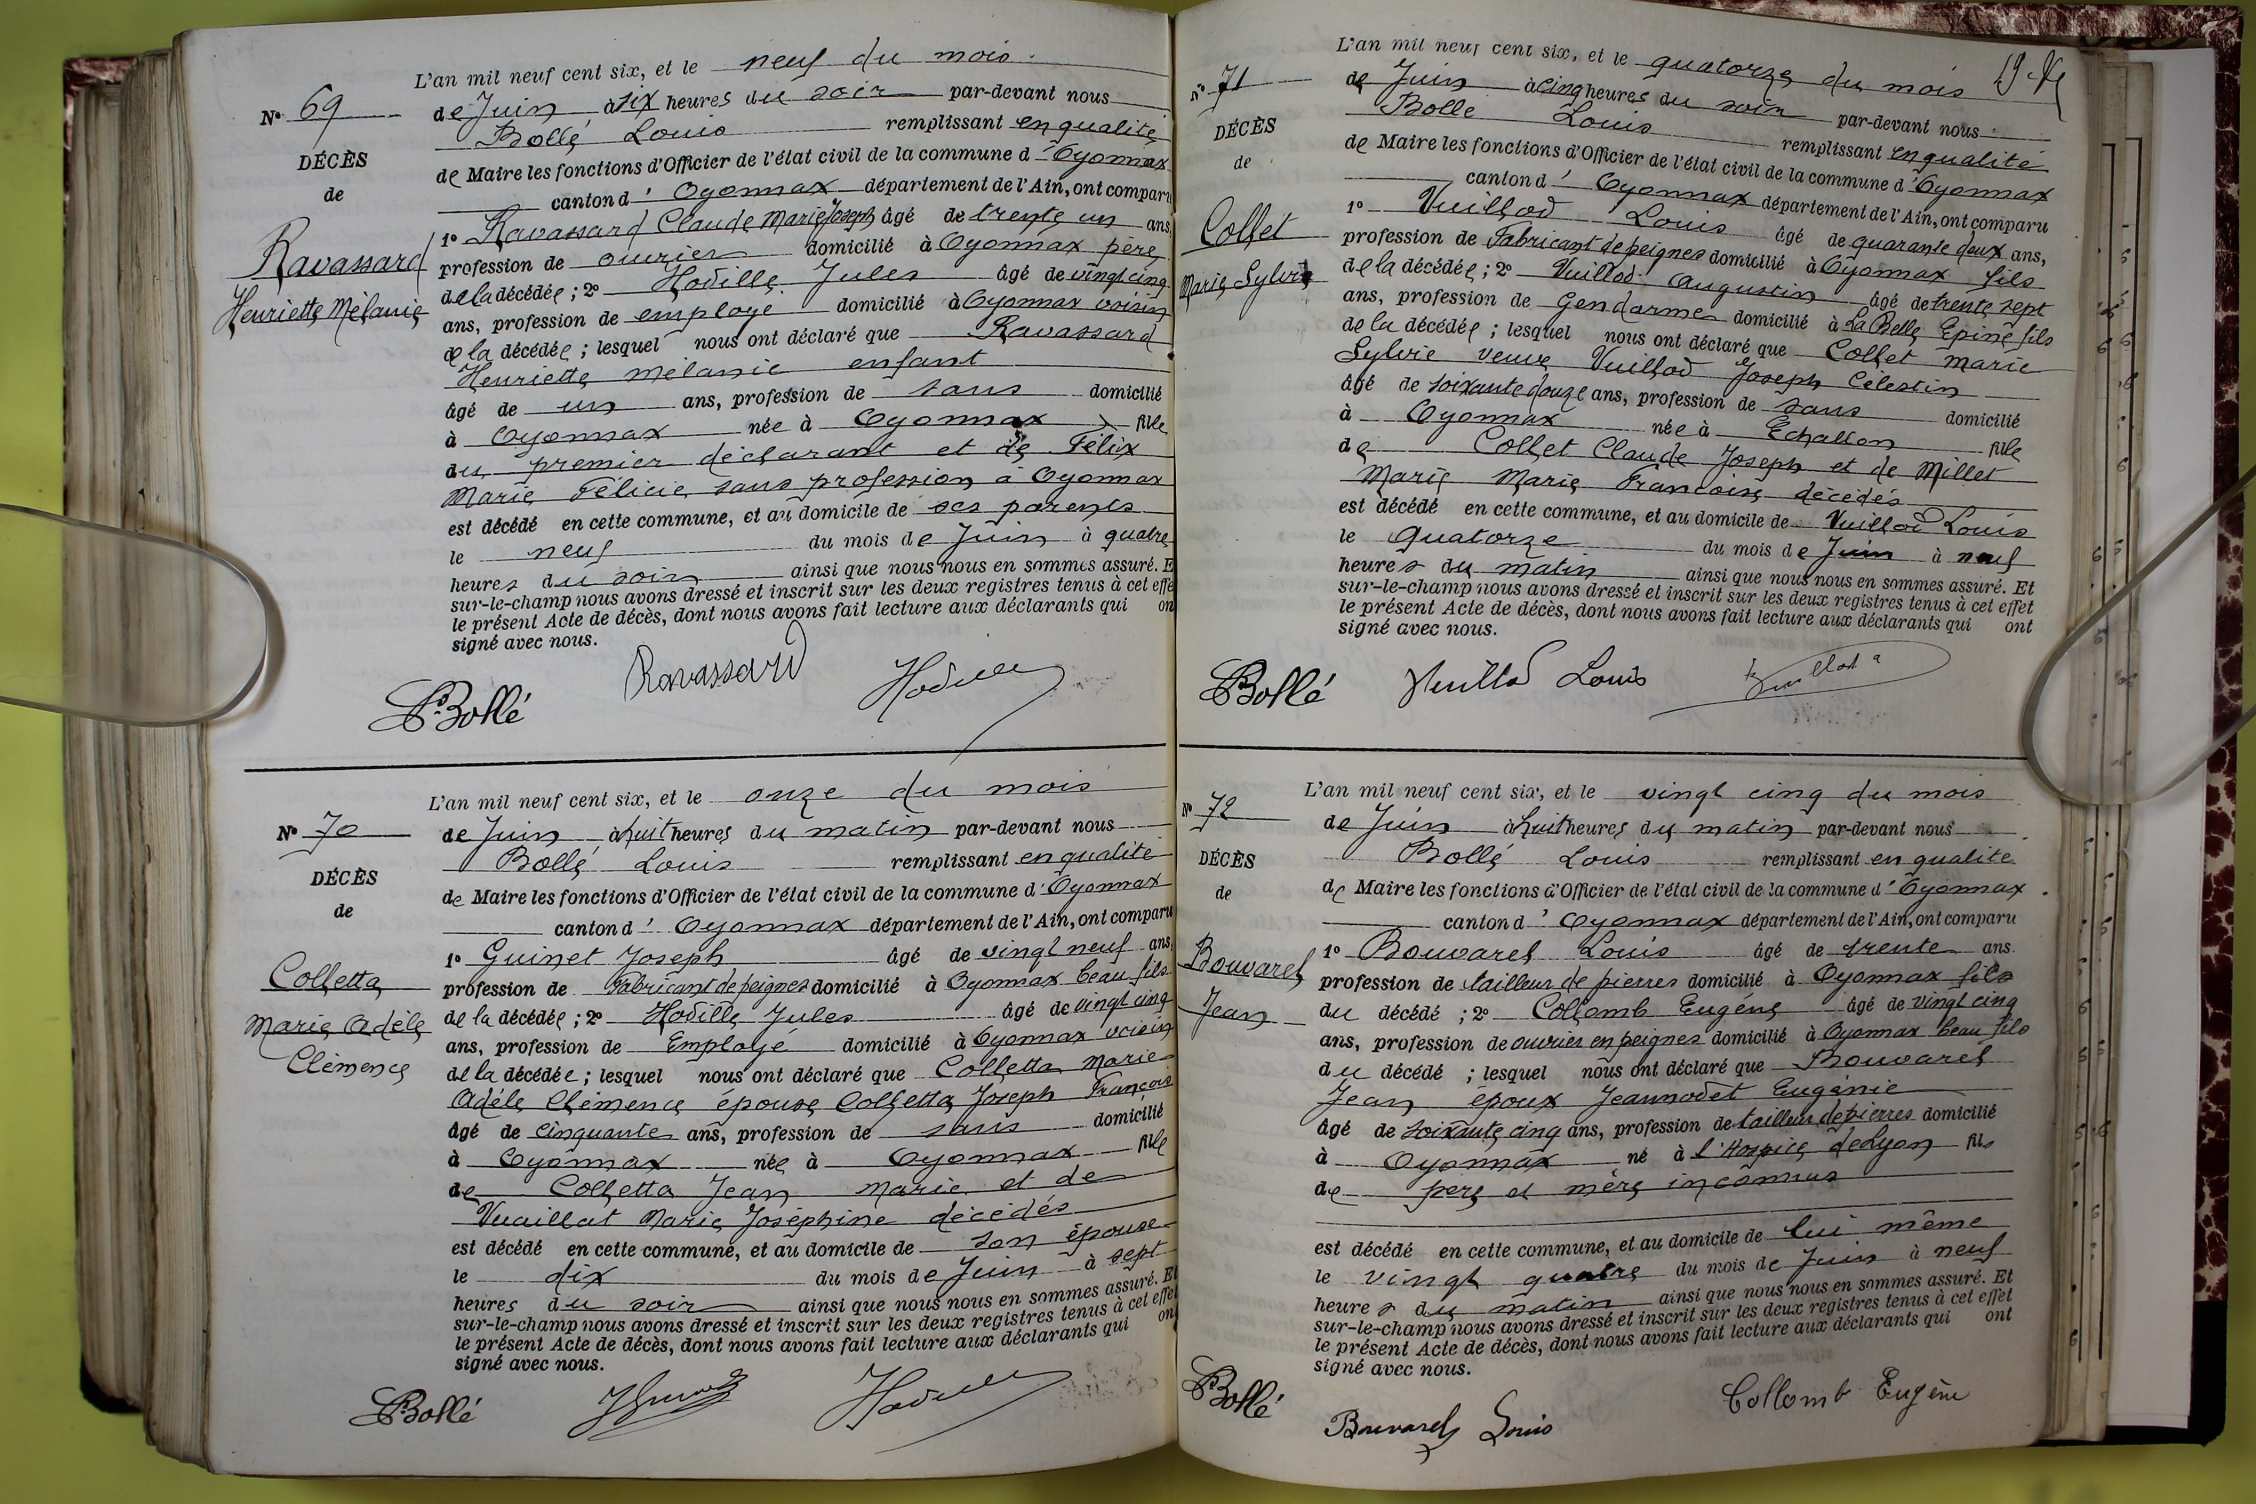 L'an mil neuf cent six, et le neuf du mois
N° 69
de Juin à six heures du soir par-devant nous
Bollé Louis remplissant en qualité
DÉCÈS
de Maire les fonctions d'Officier de l'état civil de la commune d'Oyonnax
de
canton d'Oyonnax département de l'Ain, ont comparu
Ravassard
1° Ravassard Claude Marie Joseph âgé de trente un ans,
profession de ouvrier domicilié à Oyonnax père
Henriette Mélanie
de la décédée ; 2° Hodille Jules âgé de vingt cinq
ans, profession de employé domicilié à Oyonnax voisin
de la décédée ; lesquel nous ont déclaré que Ravassard
Henriette mélanie enfant
âgé de un ans, profession de sans domicilié
à Oyonnax née à Oyonnax fille
du premier déclarant et de Félix
Marie Félicie sans profession à Oyonnax
est décédé en cette commune, et au domicile de ses parents
le neuf du mois de Juin à quatre
heures du soir ainsi que nous nous en sommes assuré. E
sur-le-champ nous avons dressé et inscrit sur les deux registres tenus à cet effe
le présent Acte de décès, dont nous avons fait lecture aux déclarants qui on
signé avec nous.
Bollé Ravassard Hodille
L'an mil neuf cent six, et le onze du mois
N° 70
de Juin à huit heures du matin par-devant nous
Bollé Louis remplissant en qualité
DÉCÈS
de Maire les fonctions d'Officier de l'état civil de la commune d'Oyonnax
de
canton d'Oyonnax département de l'Ain, ont comparu
1° Guinet Joseph âgé de vingt neuf ans,
Colletta
profession de Fabricant de peignes domicilié à Oyonnax beau fils
Marie Adèle
de la décédée ; 2° Hodille Jules âgé de vingt cinq
ans, profession de Employé domicilié à Oyonnax voisin
Clémence
de la décédée ; lesquel nous ont déclaré que Colletta Marie
Adèle Clémence épouse Colletta Joseph François
âgé de cinquante ans, profession de sans domicilié
à Oyonnax née à Oyonnax fille
de Colletta Jean Marie et de
Vuaillat Marie Joséphine décédés
est décédé en cette commune, et au domicile de son épouse
le dix du mois de Juin à sept
heures du soir ainsi que nous nous en sommes assuré. Et
sur-le-champ nous avons dressé et inscrit sur les deux registres tenus à cet effet
le présent Acte de décès, dont nous avons fait lecture aux déclarants qui ont
signé avec nous.
Bollé Hodille
L'an mil neuf cent six, et le quatorze du mois
N° 71
de Juin à cinq heures du soir par-devant nous
Bollé Louis remplissant en qualité
DÉCÈS
de Maire les fonctions d'Officier de l'état civil de la commune d'Oyonnax
de
canton d'Oyonnax département de l'Ain, ont comparu
Collet
1° Vuillod Louis âgé de quarante deux ans,
profession de Fabricant de peignes domicilié à Oyonnax fils
Marie Sylvie
de la décédée ; 2° Vuillod Augustin âgé de trente sept
ans, profession de Gendarme domicilié à La Belle Epine fils
de la décédée ; lesquel nous ont déclaré que Collet Marie
Sylvie veuve Vuillod Joseph Célestin
âgé de soixante douze ans, profession de sans domicilié
à Oyonnax née à Echallon fille
de Collet Claude Joseph et de Millet
Marie Marie Françoise décédés
est décédé en cette commune, et au domicile de Vuillod Louis
le Quatorze du mois de Juin à neuf
heures du matin ainsi que nous nous en sommes assuré. Et
sur-le-champ nous avons dressé et inscrit sur les deux registres tenus à cet effet
le présent Acte de décès, dont nous avons fait lecture aux déclarants qui ont
signé avec nous.
Bollé Vuillod Louis Vuillod a
L'an mil neuf cent six, et le vingt cinq du mois
N° 72
de Juin à huit heures du matin par-devant nous
Bollé Louis remplissant en qualité
DÉCÈS
de Maire les fonctions d'Officier de l'état civil de la commune d'Oyonnax
de
canton d'Oyonnax département de l'Ain, ont comparu
Bouvarel
1° Bouvarel Louis âgé de trente ans
profession de tailleur de pierres domicilié à Oyonnax fils
Jean
du décédé ; 2° Collomb Eugène âgé de vingt cinq
ans, profession de ouvrier en peignes domicilié à Oyonnax beau fils
du décédé ; lesquel nous ont déclaré que Bouvarel
Jean époux Jeannodet Eugénie
âgé de soixante cinq ans, profession de tailleur de pierres domicilié
à Oyonnax né à l'Hospice de Lyon fils
de père et mère inconnus
est décédé en cette commune, et au domicile de lui même
le vingt quatre du mois de Juin à neuf
heures du matin ainsi que nous nous en sommes assuré. Et
sur-le-champ nous avons dressé et inscrit sur les deux registres tenus à cet effet
le présent Acte de décès, dont nous avons fait lecture aux déclarants qui ont
signé avec nous.
Bollé Bouvarel Louis Collomb Eugène